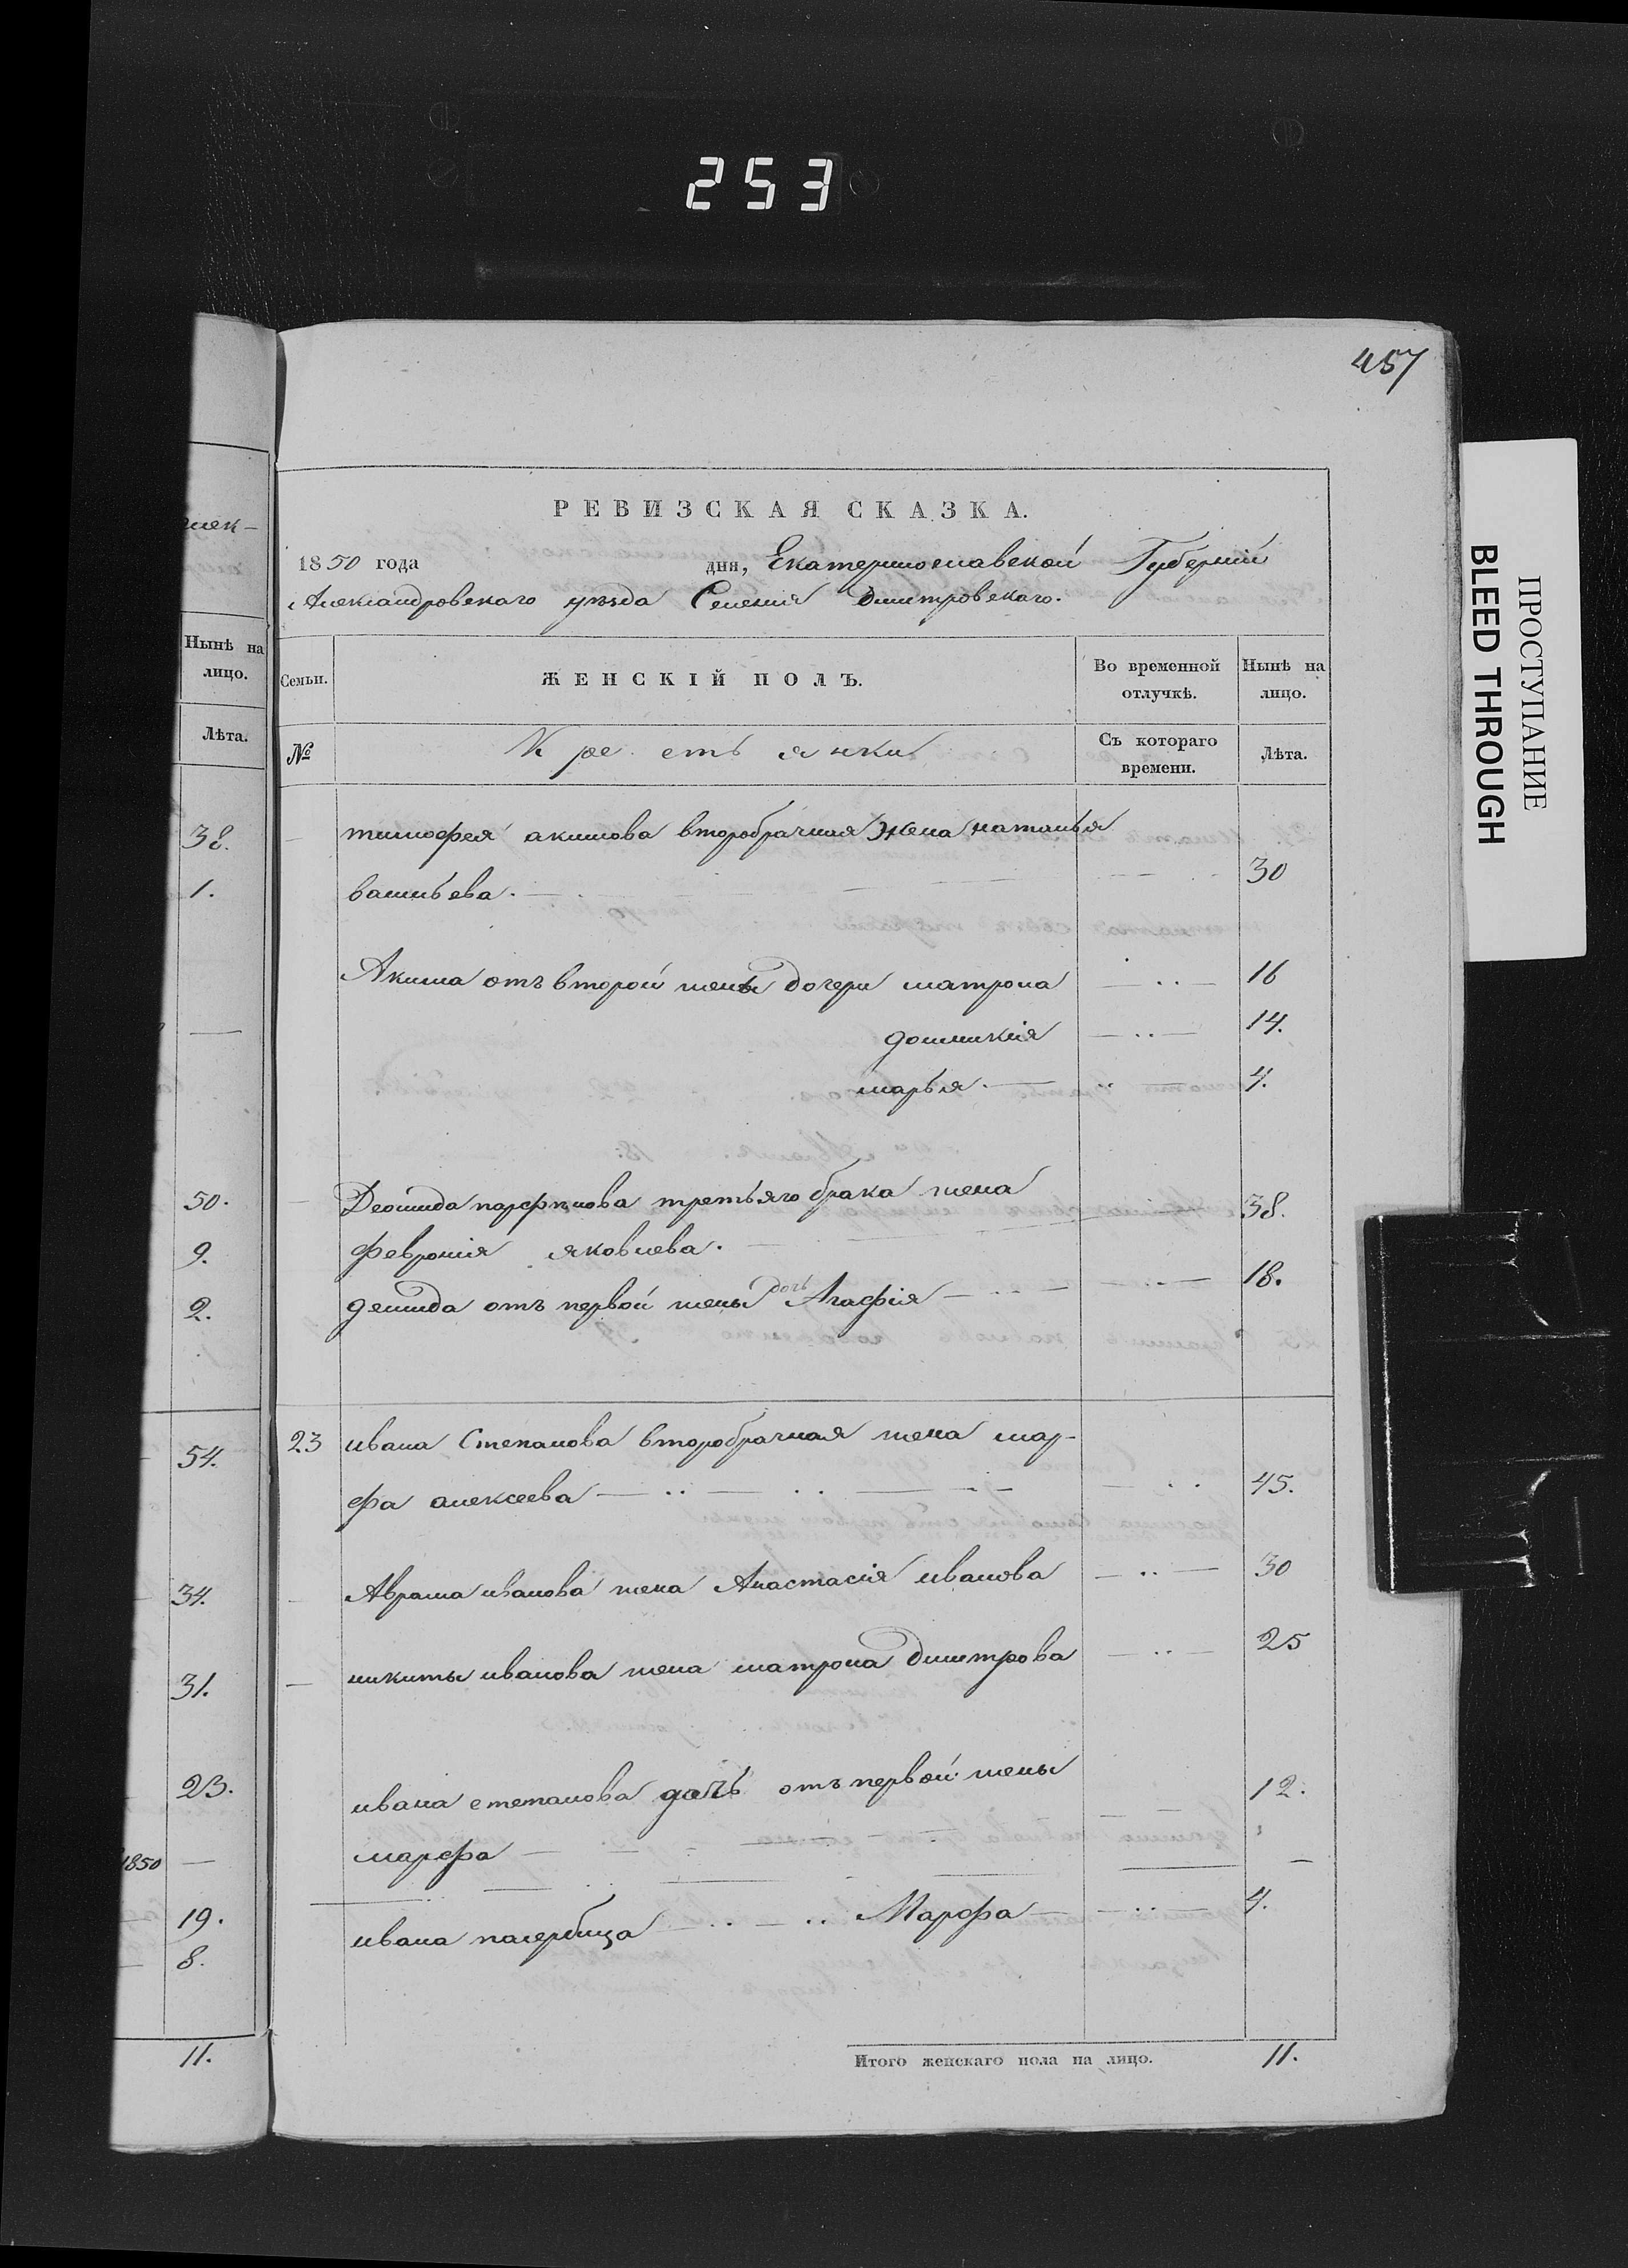 253
457
РЕВИЗСКАЯ СКАЗКА.
1850 года дня, Екатеринославской Губерніи
Александровскаго уезда Селенія Дмитровскаго.
Нынѣ на лицо.
Лѣта.
38.
1.
50.
9.
2.
54.
34.
31.
23.
1850
19.
8.
11.
Семьи. ЖЕНСКІЙ ПОЛЪ. Во временной отлучкѣ. Нынѣ на лицо.
№ Крестьянки Съ котораго времени. Лѣта.
тимофея акимова второбрачная жена наталья
васильева. 30
Акима отъ второй жены дочери матрона 16
домникия 14.
марья. 4.
Демида парфинова третьяго брака жена 38.
феврония яковлева.
демида отъ первой жены дочь Агафія 18.
23 ивана Степанова второбрачная жена мар-
фа алексеева 45.
Аврама иванова жена Анастасія иванова 30
никиты иванова жена матрона дмитрова 25
ивана степанова дочь отъ первой жены 12.
марфа
ивана падчерица Марфа 4.
Итого женскаго пола на лицо. 11.
ПРОСТУПАНИЕ
BLEED THROUGH